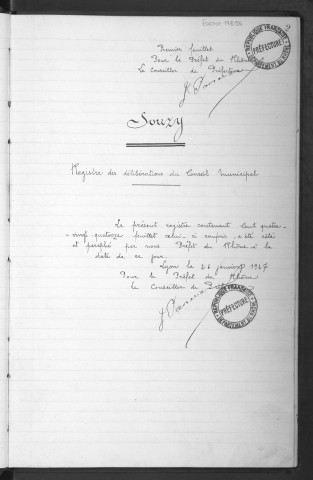 2
Premier feuillet
Pour le Préfet du Rhône
Le Conseiller de Préfecture
RÉPUBLIQUE FRANÇAISE
PRÉFECTURE
DÉPARTEMENT DU RHÔNE
Souzy
Registre des délibérations du Conseil Municipal
Le présent registre contenant Cent quatre-
vingt quatorze feuillets celui-ci compris a été côté
et paraphé par nous Préfet du Rhône à la
date de ce jour.
Lyon le 26 janvier 1927
Pour le Préfet du Rhône
le Conseiller de Préfecture
RÉPUBLIQUE FRANÇAISE
PRÉFECTURE
DÉPARTEMENT DU RHÔNE